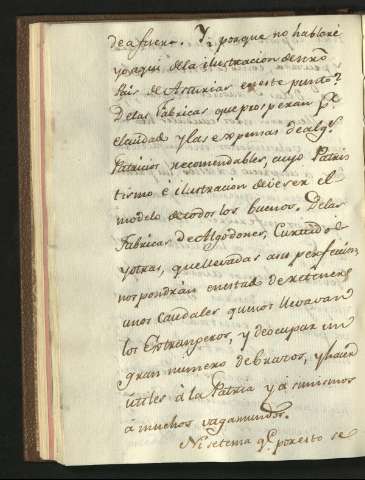 de afuera. Y, porque no hablaré
yo aqui de la ilustracion de nrõ
Pais de Asturias en este punto?
De las Fabricas que prosperan pr.
el cuidado y las expensas de algs.
Patricios recomendables, cuyo Patrio
tismo é ilustracion deve ser el
modelo de todos los buenos. De las
Fabricas de Algodones, Curtidos
y otras, que llevadas a su perfeccion,
nos pondrán en estado de retener
unos Caudales que nos llevavan
los Estrangeros, y de ocupar un
gran numero de brazos, y hacer
utiles á la Patria y á si mismos
á muchos vagamundos.
Ni se tema qe. por esto se